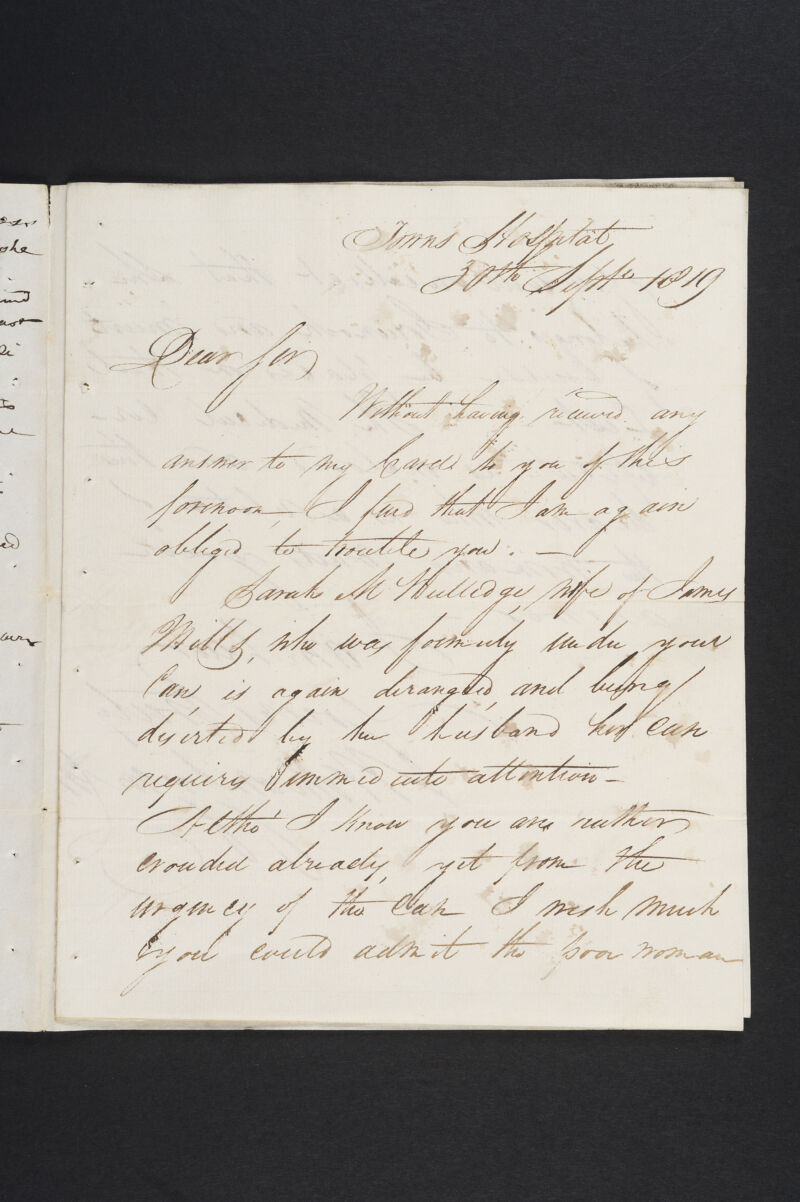 Towns Hospital
30th Septr 1819
Dear Sir
Without having received any
answer to my Card to you of this
forenoon, I find that I am again
obliged to trouble you. —
Sarah Mc wife of James
Mills, who was formerly under your
Care, is again deranged, and being
deserted by her husband her case
requires immediate attention —
Altho' I know you are rather
crouded already, yet from the
urgency of the Case I wish much
you could admit the poor woman